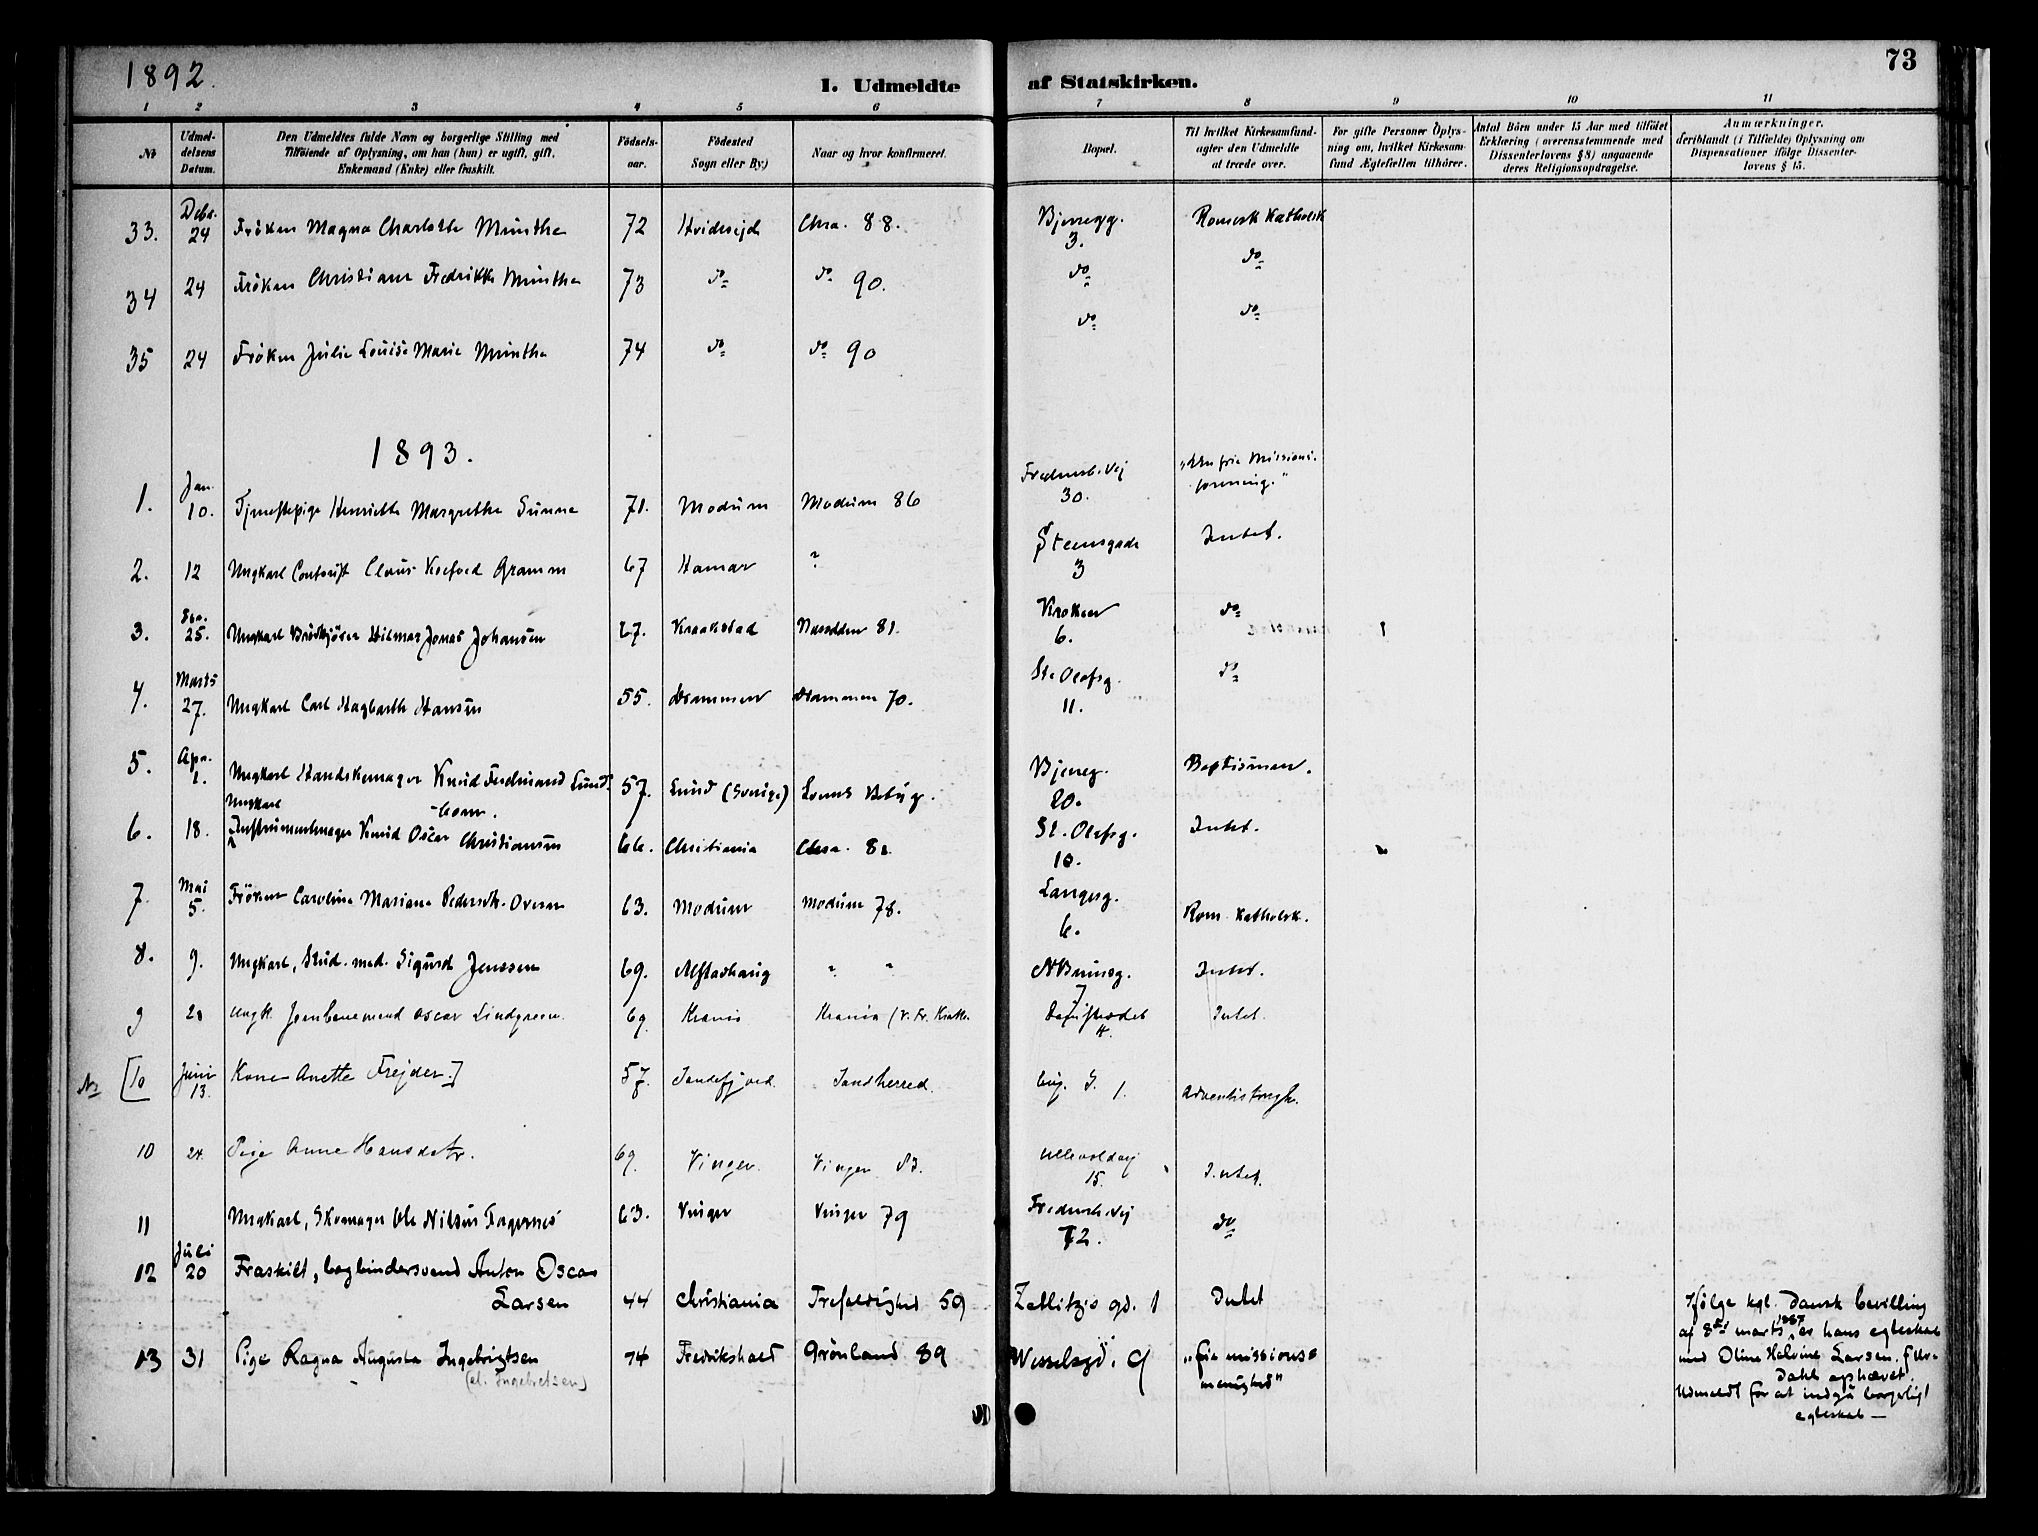 1892.
73
1. Udmeldte af Statskirken.
1 2 3 4 5 6 7 8 9 10 11
No
Udmeldelsens Datum.
Den Udmeldtes fulde Navn og borgerlige Stilling med
Tilföiende af Oplysning, om han (hun) er ugift, gift,
Enkemand (Enke) eller fraskilt.
Födselsaar.
Födested
Sogn eller By.)
Naar og hvor konfirmeret.
Bopæl.
Til hvilket Kirkesamfund
agter den Udmeldte
at træde over.
For gifte Personer Oplysning om, hvilket Kirkesamfund Ægtefællen tilhörer.
Antal Börn under 15 Aar med tilföiet
Erklæring (overensstemmende med
Dissenterlovens § 8) angaaende
deres Religionsopdragelse.
Anmærkninger.
deriblandt (i Tilfælde) Oplysning om
Dispensationer ifölge Dissenterlovens § 15.
33. Debr. 24 Fröken Magna Charlotte Münthe 72 Hvideseid Chra. 88. Bjerregg. 3. Romersk Katholsk
34 24 Fröken Christiane Fredrikke Münthe 73 do 90. do do
35 24 Fröken Julie Louise Marie Münthe 74 do do 90 do do
1893.
1. Jan. 10. Tjenestepige Henriette Margrethe Sünne 71. Modum Modum 86 Frederiksb.vej 30. "Den frie Missionsforening."
2. 12 Ungkarl Claus Koefoed Gramm 67 Hamar ? Steensgade 3 Intet.
3. 25. Ungkarl Hilmar Jonas Johansen 67. Kraakstad Næsodden 81. Kroken 6. do
4. Marts 27. Ungkarl Carl Hagbarth Hansen 55. Drammen Drammen 70. St. Olafsg. 11. do
5. Apr. 1. Ungkarl Handskemager Knud Ferdinand Lund- 57. Lund (Sverige) Bjerreg. 20. Baptismen.
6. 18. Ungkarl Instrumentmager Knud Oscar Christiansen 66. Christiania Chra. St. Olafsg. 10. Intet.
7. Mai 5. Fröken Caroline Mariane Pedersdt. Overn 63. Modum Modum 78. Langesg. 6. Rom. Katholsk.
8. 9. Ungkarl, Stud. med. Sigurd Jenssen 69. Alstadhaug " " N Bruunsg. 7 Intet.
9 Ungk. Oscar Lindgreen 69. Krania Krania (V. Fr. Krakk. 4. Intet.
No [10 Juni 13. Kone Anette Frejder.] 57. Sandefjord Sandherred. 1. Adventistmgh.
10 24. Pige Anne Hansdatr. 69. Vinger. Vinger Ullevoldsvej 15. Intet.
11 Ungkarl, Skomager Ole Nilsen Fagernes 63. Vinger Vinger 79 Frederiksb.vej 72. do
12 Juli 20 Fraskilt, bogbindersvend Anton Oscar
Larsen 44 Christiania Trefoldighed 59 Zetlitzis gd. 1 Intet
Ifölge kgl. Dansk bevilling
af 8de marts 1887 er hans egteskab
med Oline Halvine Larsen, f.
Dahl ophævet.
Udmeldt for at indgå borgerligt
egteskab —
13 31 Pige Ragna Augusta Ingebrigtsen 74 Fredrikshald Grönland 89 Wesselsgd. 9 "frie missions-
menighed"
(el. Ingebretsen)